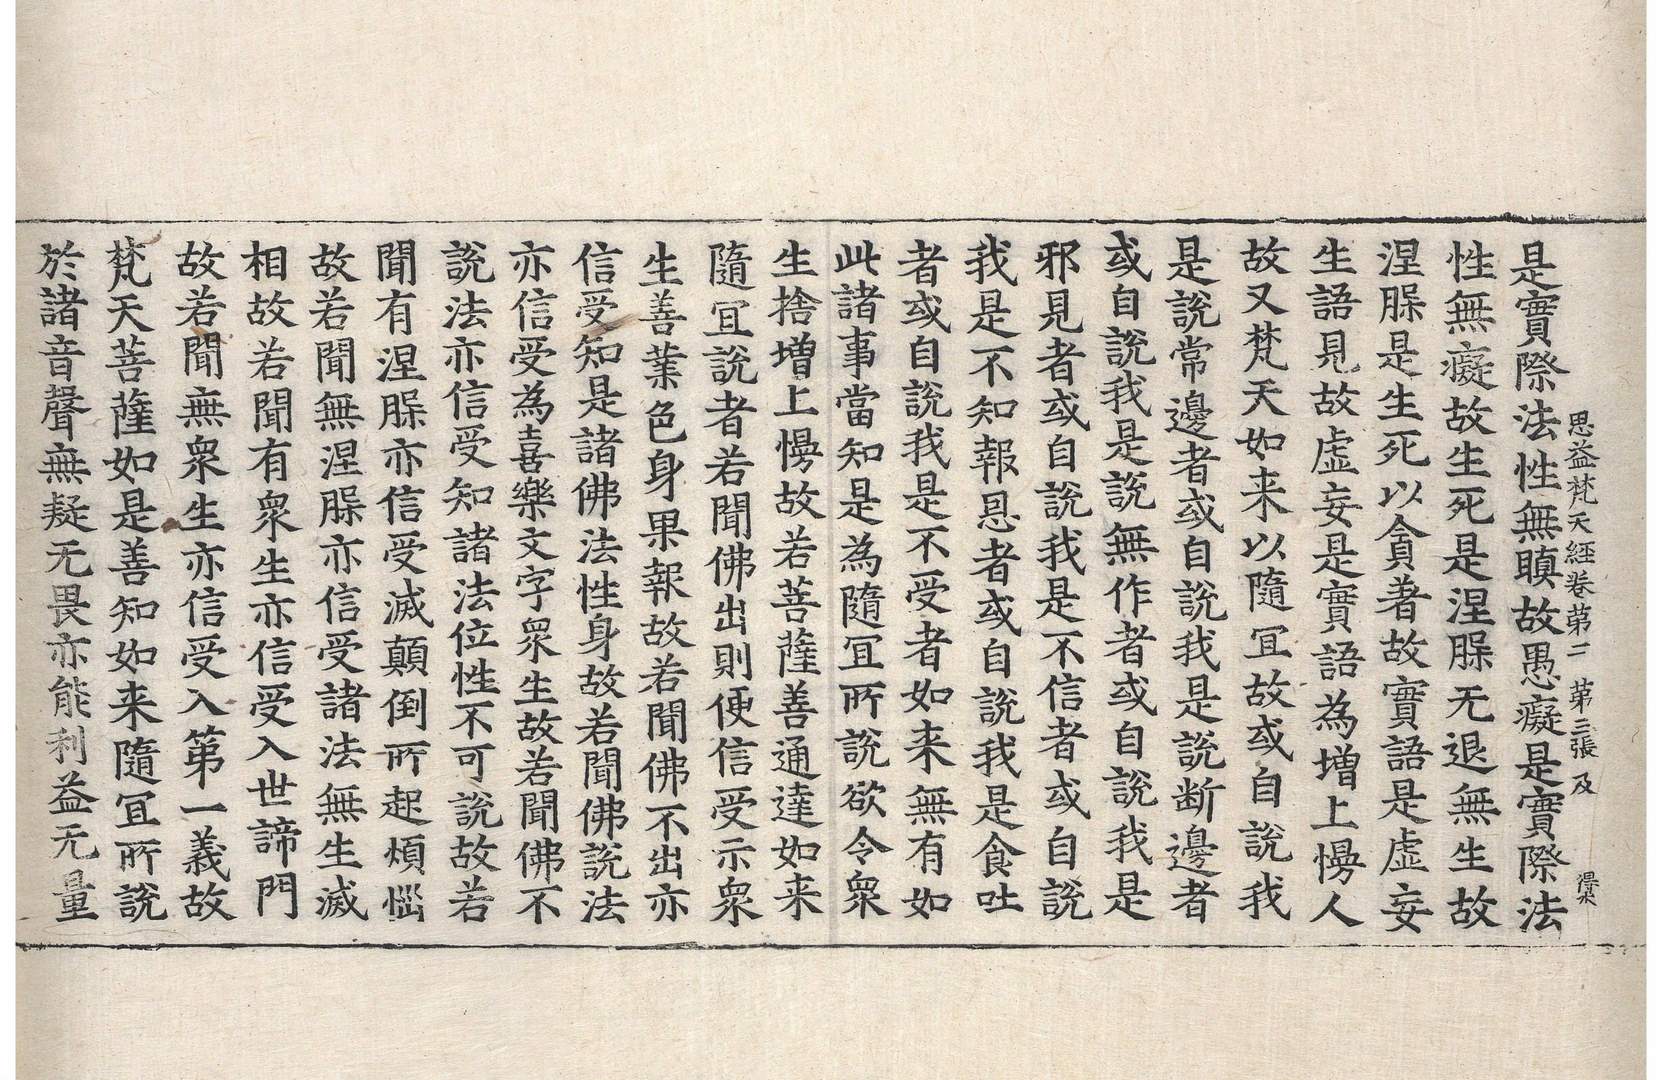 思益梵天經卷第二 第三張 及
是實際法性無瞋故愚癡是實際法
性無癡故生死是涅槃无退無生故
涅槃是生死以貪著故實語是虛妄
生語見故虛妄是實語為增上慢人
故又梵天如来以隨冝故或自說我
是說常邊者或自說我是說断邊者
或自說我是說無作者或自說我是
邪見者或自說我是不信者或自說
我是不知報恩者或自說我是食吐
者或自說我是不受者如来無有如
此諸事當知是為隨冝所說欲令衆
生捨增上慢故若菩薩善通達如来
隨冝說者若聞佛出則便信受示衆
生善業色身果報故若聞佛不出亦
信受知是諸佛法性身故若聞佛說法
亦信受為喜樂文字衆生故若聞佛不
說法亦信受知諸法位性不可說故若
聞有涅槃亦信受滅顛倒所起煩惱
故若聞無涅槃亦信受諸法無生滅
相故若聞有衆生亦信受入世諦門
故若聞無衆生亦信受入第一義故
梵天菩薩如是善知如来隨冝所說
於諸音聲無疑无畏亦能利益无量